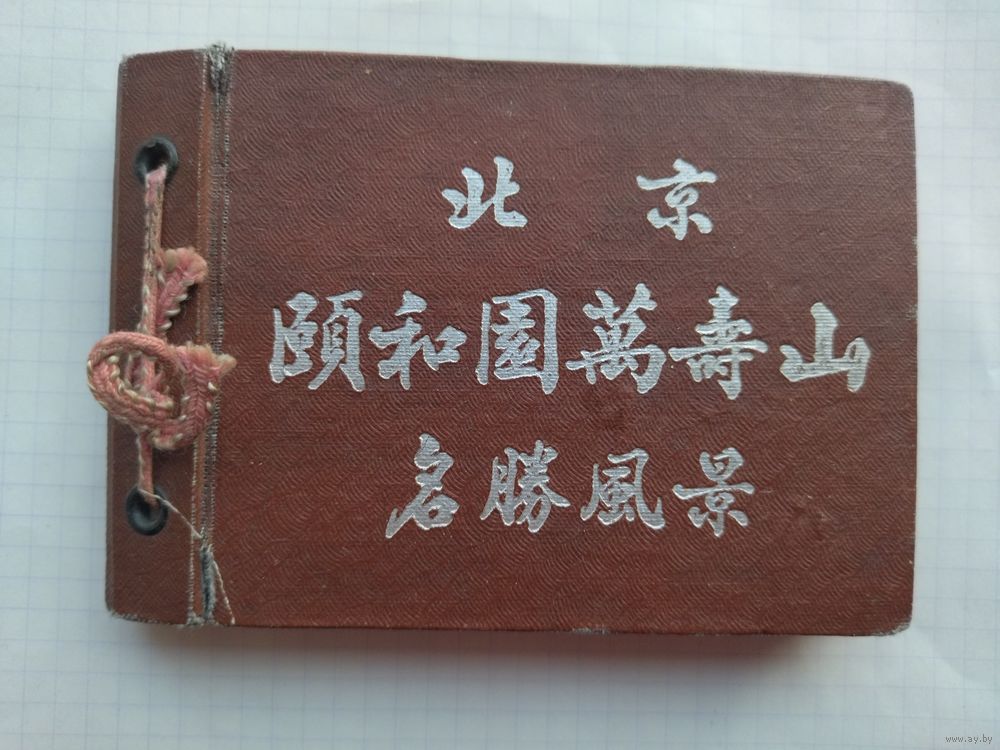 北京
頤和園萬壽山
名勝風景
www.ay.by